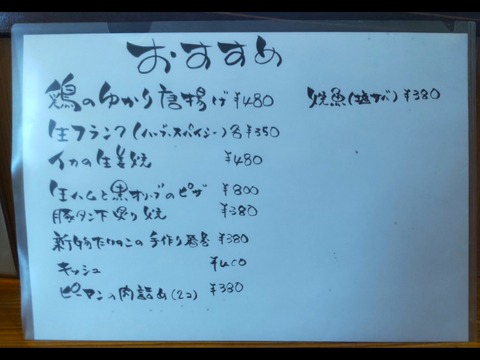 おすすめ
鶏のゆかり唐揚げ ¥480
焼魚(塩サバ) ¥380
生フランク(ハーブ・スパイシー)各¥350
イカの生姜焼 ¥480
生ハムと黒オリーブのピザ ¥800
豚タン下 焼 ¥380
新物たけのこの手作り ¥380
キッシュ ¥400
ピーマンの肉詰め(2コ) ¥380